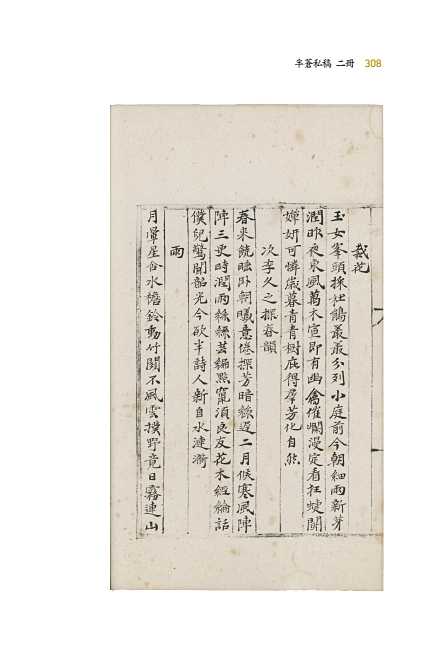 半蒼私稿 二冊 308
栽花
玉女峯頭採杜鵑叢叢分列小庭前今朝細雨新芽
潤昨夜東風萬木宣即有幽禽催爛漫定看狂蝶鬪
嬋姸可憐歲暮靑靑樹庇得羣芳化自然
次李久之探春韻
春來饒睡卧朝曦意倦探芳暗緣遲二月候寒風陣
陣三更時潤雨絲絲芸編點竄須良友花木經綸話
僕兒驚聞韶光今欲半詩人新自水漣漪
雨
月暈星昏水檐鈴動竹關不風雲撲野竟日霧連山